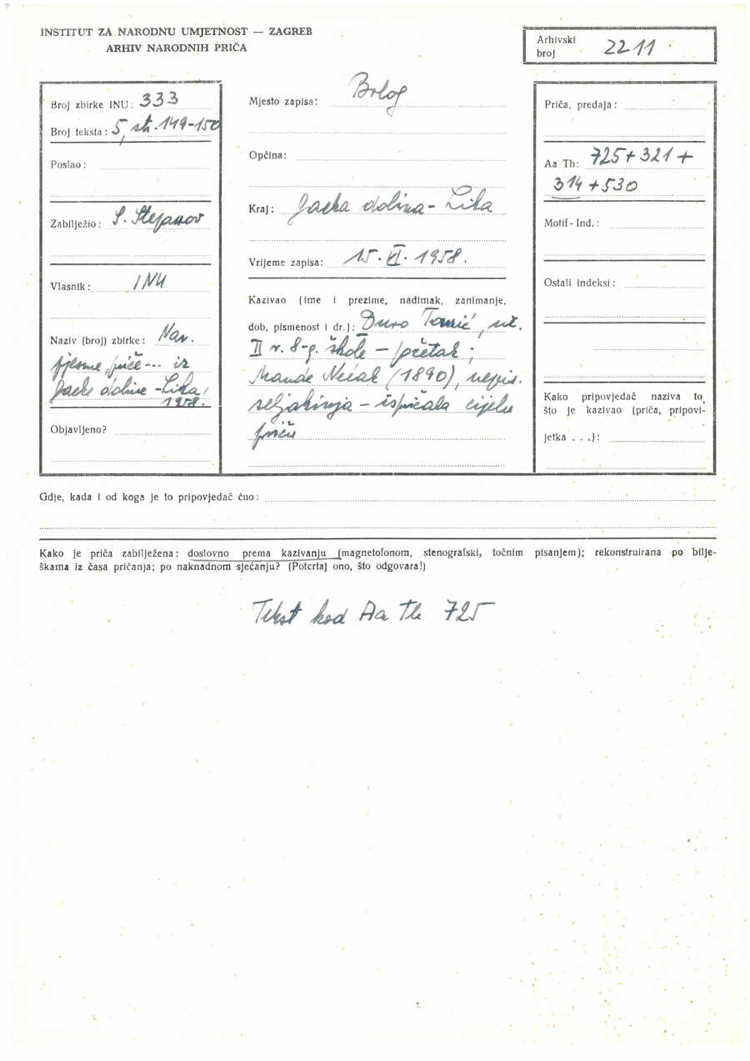 INSTITUT ZA NARODNU UMJETNOST — ZAGREB
ARHIV NARODNIH PRIČA
Arhivski
broj 2211
Broj zbirke INU: 333
Broj teksta: 5, str. 149-150
Poslao:
Zabilježio: S. Stepanov
Vlasnik: INU
Naziv (broj) zbirke: Nar.
pjesme, priče... iz
Gacke doline - Lika,
1958.
Objavljeno?
Mjesto zapisa: Brlog
Općina:
Kraj: Gacka dolina - Lika
Vrijeme zapisa: 15. VI. 1958.
Kazivao (ime i prezime, nadimak, zanimanje,
dob, pismenost i dr.): Đuro Tomić, uč.
II r. 8-g. škole - početak;
Mande (1890), nepis.
seljakinja - ispričala cijelu
priču
Priča, predaja:
Aa Th: 725 + 321 +
314 + 530
Motif - Ind.:
Ostali indeksi:
Kako pripovjedač naziva to,
što je kazivao (priča, pripovi-
jetka . . .):
Gdje, kada i od koga je to pripovjedač čuo:
Kako je priča zabilježena: doslovno prema kazivanju (magnetofonom, stenografski, točnim pisanjem); rekonstruirana po bilje-
škama iz časa pričanja; po naknadnom sjećanju? (Potcrtaj ono, što odgovara!)
Tekst kod Aa Th 725